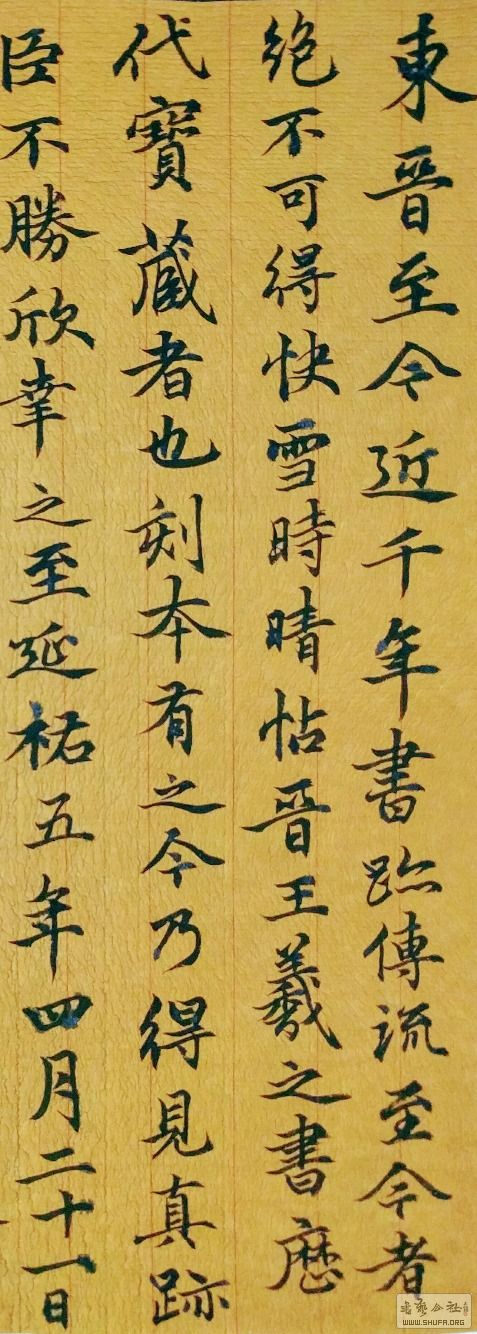 東晉至今近千年書跡傳流至今者
絕不可得快雪時晴帖晉王羲之書歷
代寶蔵者也刻本有之今乃得見真跡
臣不勝欣幸之至延祐五年四月二十一日
書藝公社
WWW.SHUFA.ORG